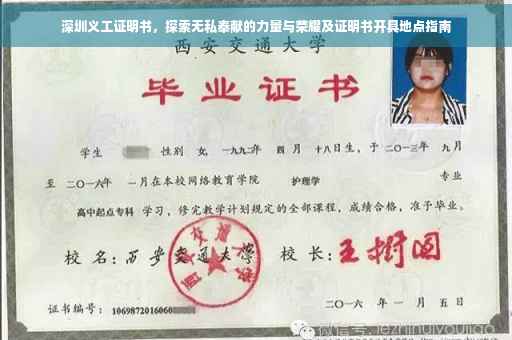 深圳义工证明书，探索无私奉献的力量与荣耀及证明书开具地点指南
西安交通大学
毕业证书
学生 性别 女, 一九九二年 四月 十八日生, 于 二〇一三年 九月
至 二〇一六年 一月在本校网络教育学院 护理学 专业
高中起点专科 学习, 修完教学计划规定的全部课程, 成绩合格, 准予毕业。
校名: 西安交通大学 校长: 王树国
证书编号: 1069872016060
二〇一六 年 一 月 五 日
微信号: jiezhinuiyoujiao